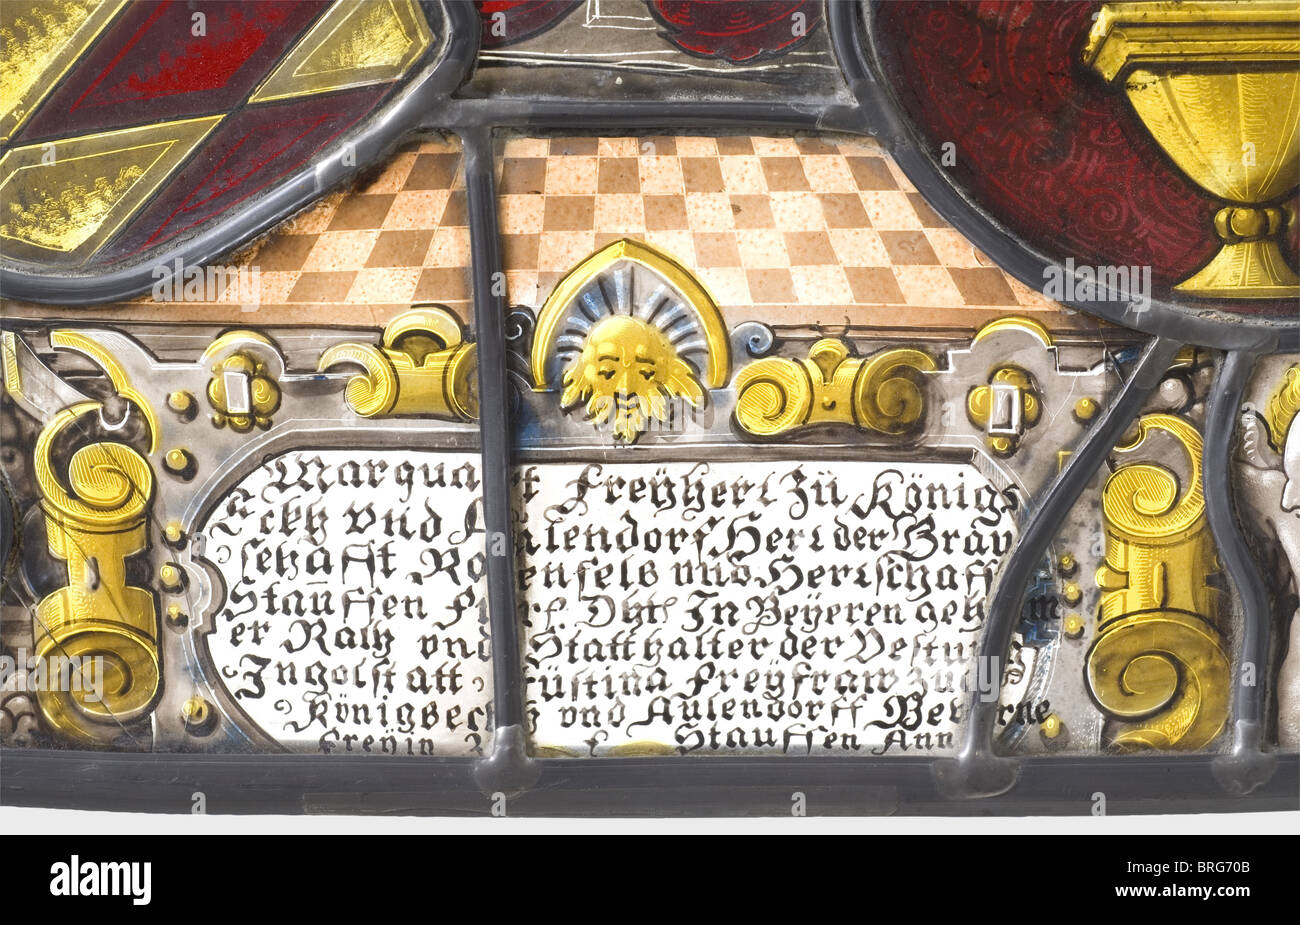 Marqua t Freÿherr Zů Königs
Eckh vnd A lendorf Herr der Grav
schafft Ro enfels vnd Herrschaff
Stauffen F rs. Dht. In Beÿeren geh m
er Rath vnd Statthalter der Vestung
Ingolstatt stina Freÿfraw zu
Königseck vnd Aulendorff Gebo rne
freÿin Stauffen Ann
alamy stock photo
Image ID: BRG70B
www.alamy.com